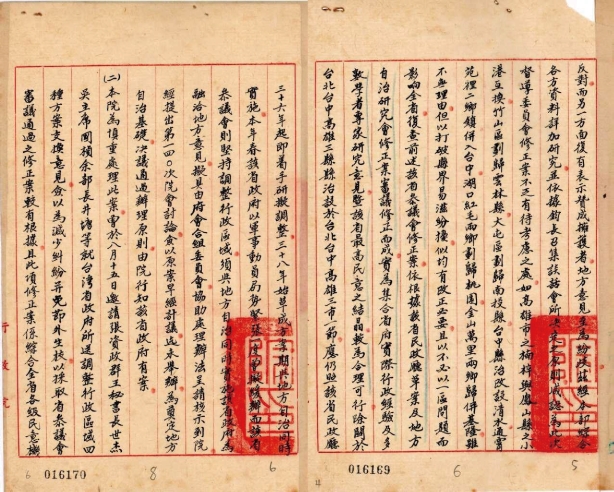 反對而另一方面復有表示贊成擁護者地方意見至為紛歧茲經本部綜合
各方資料詳加研究並依據鈞長召集談話會所決定之原則咸認為此次
督導委員會修正案不乏有待考慮之處如高雄市之楠梓與鳳山縣之小
港互換竹山區劃歸雲林縣大屯區劃歸南投縣台中縣治改設清水通霄
苑裡二鄉鎮併入台中湖口紅毛兩鄉劃歸桃園金山萬里兩鄉歸併基隆雖
不無理由但以打破縣界易滋紛擾似均有改正必要且以不又以一區問題而
影響全省復查前述該省參議會修正案依根據該省民政廳草案及地方
自治研究會修正案審議修正而成實為集合省府實際行政經驗及多
數學者專家研究意見暨該省最高民意之結晶較為合理可行除關於
台北台中高雄三縣縣治設於台北台中高雄三市一節應仍照該省民政廳
016169
6
5
三十六年起即着手研擬調整三十八年始草成方案期與地方自治同時
實施本年春該省政府以軍事動員局勢緊張一度曾擬緩辦而該省
參議會則堅持調整行政區域須與地方自治同時實施該省政府為
融洽地方意見擬具由府會合組委員會協助處理辦法呈請核示到院
經提出第一四〇次院會討論僉以原案早經計議迄未舉辦為奠定地方
自治基礎決議通過辦理原則由院行知該省政府有案
(二)本院為慎重處理此案曾於八月十五日邀請張資政群王秘書長世杰
吳主席國楨余部長井塘等就台灣省政府所送調整行政區域四
種方案交換意見僉以為減少糾紛並免節外生枝以採取省參議會
審議通過之修正案較有根據且此項修正案係綜合全省各級民意機
行政院
016170
8
6
6